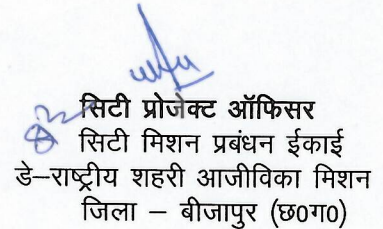 सिटी प्रोजेक्ट ऑफिसर
सिटी मिशन प्रबंधन ईकाई
डे–राष्ट्रीय शहरी आजीविका मिशन
जिला – बीजापुर (छ0ग0)